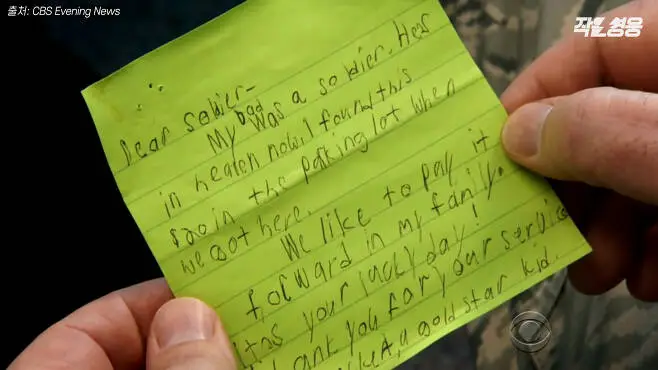 출처: CBS Evening News
작은영웅
Dear Soldier-
My dad was a soldier. Hes
in heaven now. I found this
$20 in the parking lot when
we got here.
We like to pay it
forward in my family.
Its your lucky day!
Thank you for your service
a gold star kid.